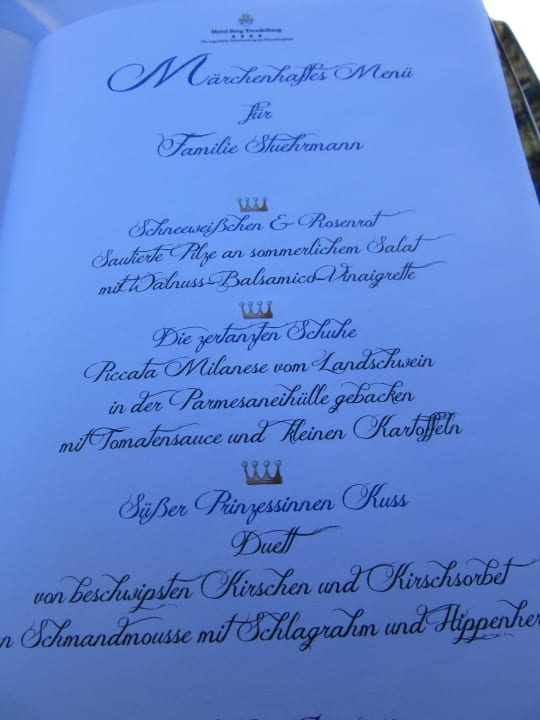 Hotel Burg Trendelburg
Märchenhaftes Menü
für
Familie Stuehrmann
Schneeweißchen & Rosenrot
Sautierte Pilze an sommerlichem Salat
mit Walnuss-Balsamico-Vinaigrette
Die zertanzten Schuhe
Piccata Milanese vom Landschwein
in der Parmesaneihülle gebacken
mit Tomatensauce und kleinen Kartoffeln
Süßer Prinzessinnen Kuss
Duett
von beschwipsten Kirschen und Kirschsorbet
Schmandmousse mit Schlagrahm und